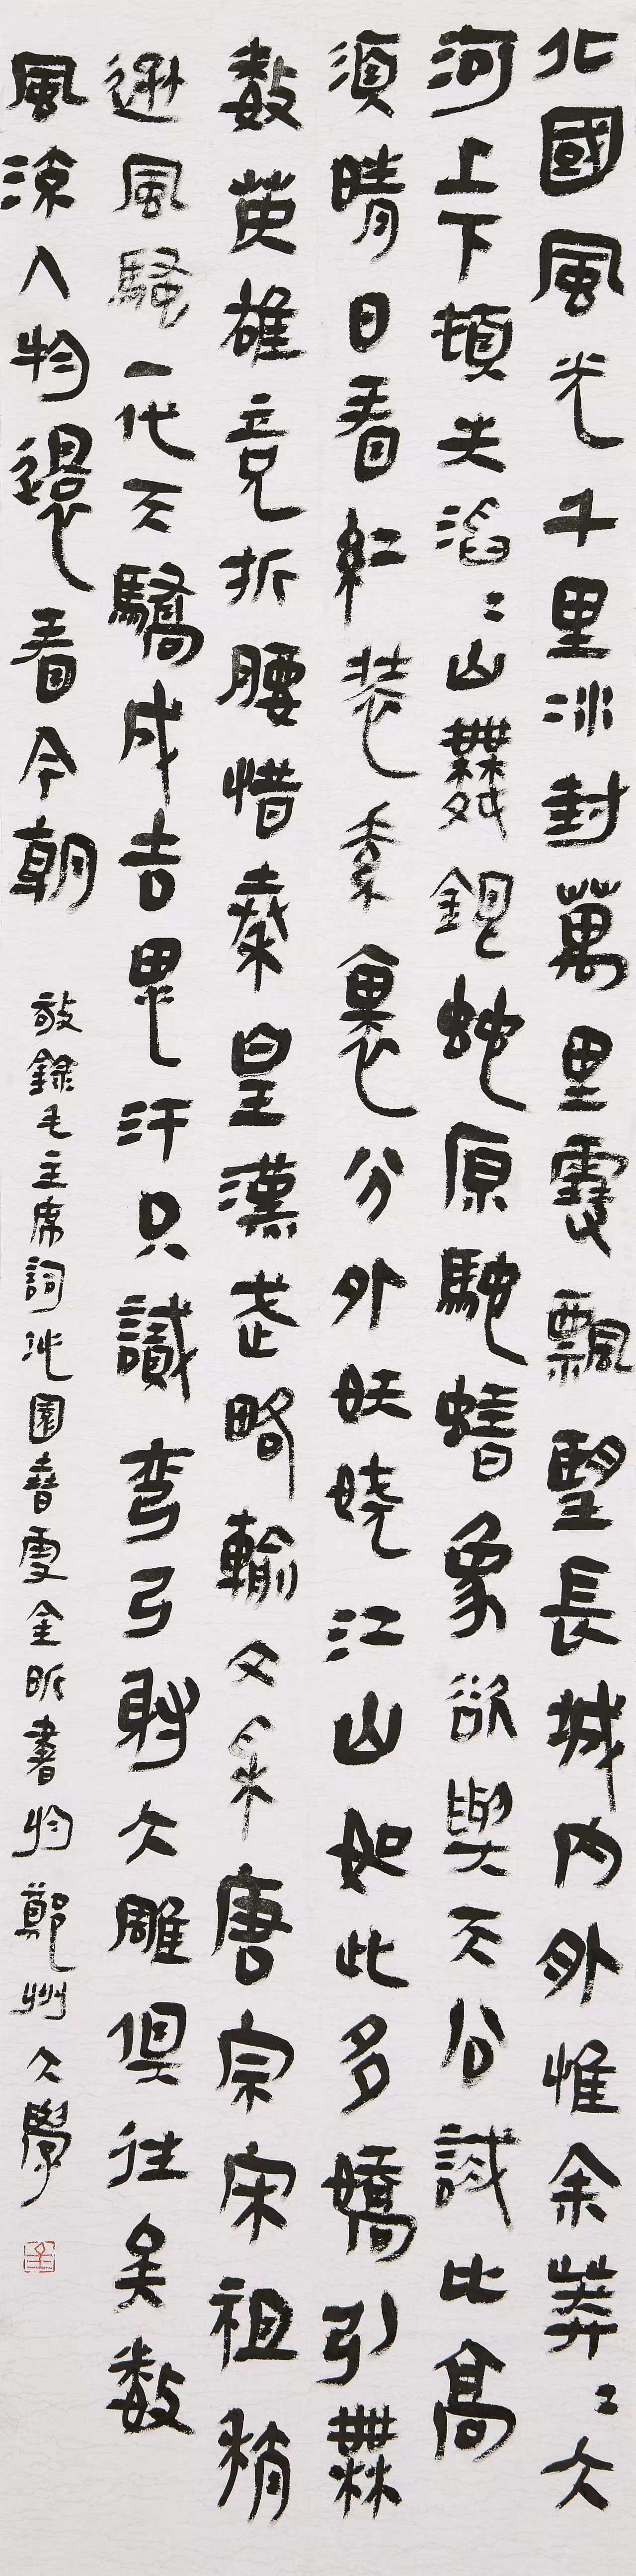 北國風光千里冰封萬里雪飄望長城內外惟余莽〻大
河上下頓失滔〻山舞銀蛇原馳蜡象欲與天公試比高
須晴日看紅裝素裹分外妖嬈江山如此多嬌引無
數英雄竞折腰惜秦皇漢武略輸文采唐宗宋祖稍
遜風騷一代天驕成吉思汗只識彎弓射大雕俱往矣數
風流人物還看今朝
敬錄毛主席詞沁園春雪全昕書於鄭州大學